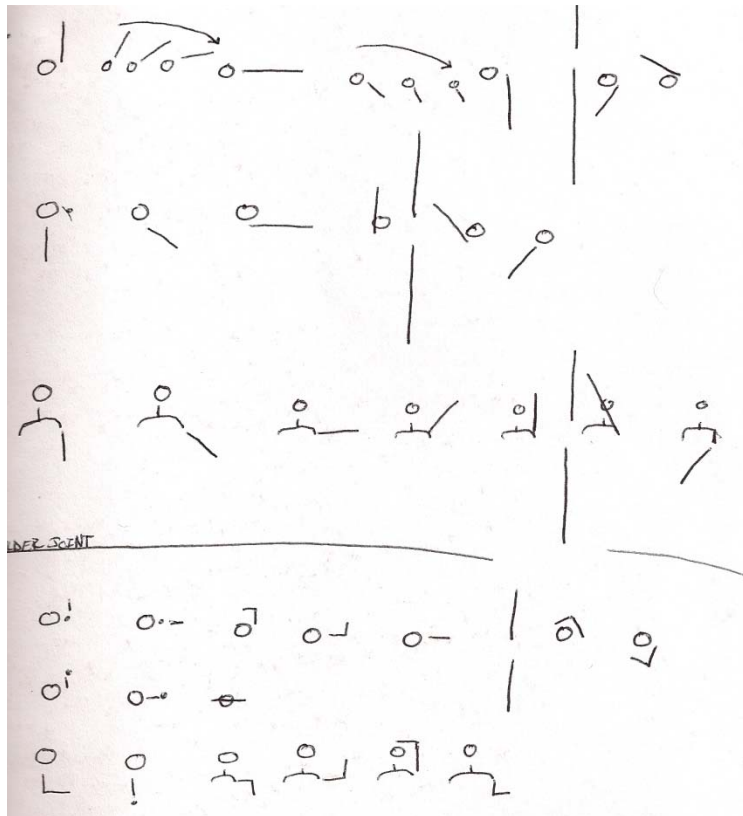 LDER JOINT